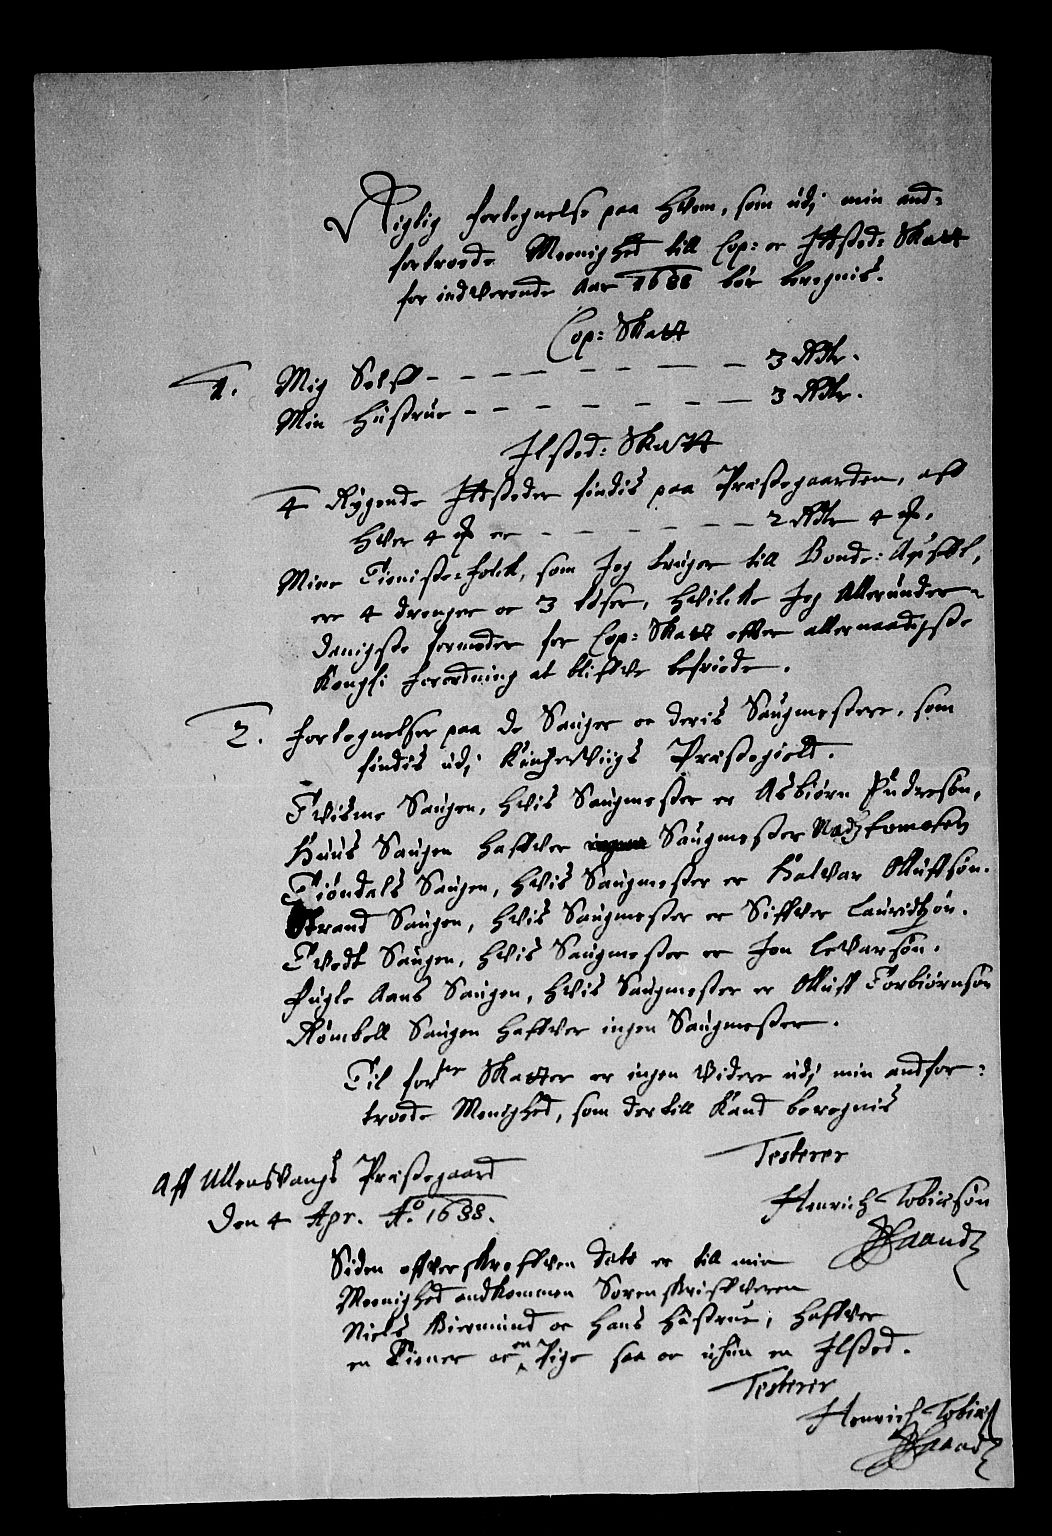 Rigtig fortegnelse paa Hvem, som udj min and-
fortroede Meenighed till Cop: oc Ilsted: Skatt
for indverende Aar 1688 bør beregnis.
Cop: Skatt
1. Mig Selff - - - - - - - 3 Rdr.
Min Hüstrue - - - - - - - 3 Rdr.
Ilsted: Skatt
4 Rygende Ilsteder findis paa Præstegaarden, aff
Hver 4 er - - - - - - 2 Rdr 4
Mine Tieniste-folck, som Jeg brüger till Bonde:
ere 4 drenger oc 3 töser, Hvilcke Jeg Alleründer-
danigste formoder for Cop: Skatt efter allernaadigste
Kongl: forordning at bliffve befriede.
2. Fortegnelse paa de Sauger oc deris Saugmestere, som
findis udj Kingserviigs Præstegield.
Tvisme Saugen, Hvis Saugmester er Asbiørn Püdersön,
Huus Saugen haffver Saugmester Madz tomesen
Tiöndals Saugen, Hvis Saugmester er Halvar Olluffsön.
Strand Saugen, Hvis Saugmester er Siffver Lauridtzön.
Tvedt Saugen, Hvis Saugmester er Jon Levarsön.
Fugle Aans Saugen, Hvis Saugmester er Olluff Torbiørnsön
Römbell Saugen haffver ingen Saugmester.
Til forne Skatter er ingen Videre udj min andfor-
troede Menighed, som der till kand beregnis
Testerer
Aff Ullensvangs Præstegaard
Den 4 Apr. Ao 1688.
Henrich Tobiesön
Siden offverskreffven dato er till min
Meenighed andkommen Sorenskriffveren
Niels Biermund oc Hans Hüstrue, haffver
en Tiener oc en Pige saa oc en Ilsted.
Testerer
Henrich Tobies